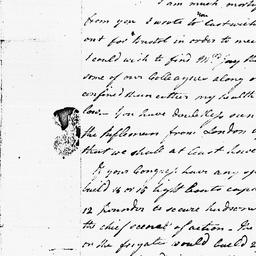 I am much mortif
from you I wrote to you last with
out for Bristol in order to mee
I could wish to find Mr Jay tha
some of our Colleagues along w
confined than either my health
low— You have doubtless seen
the Politeness from London a
that we shall at least have
If your Congress have any sp
build 14 or 15 light Boats capa
12 pounder to secure hudson
the chief scene of action— the
or the frigate would build 2